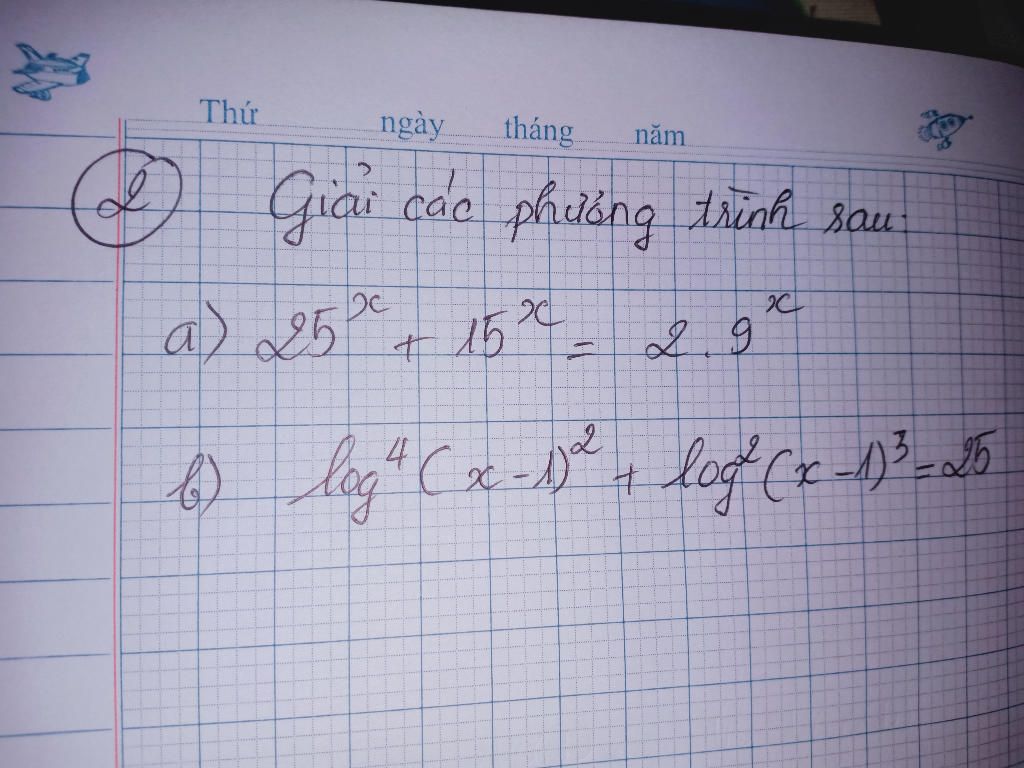 Thứ ngày tháng năm
2 Giải các phương trình sau:
a) 25^x + 15^x = 2.9^x
b) log^4(x-1)^2 + log^2(x-1)^3 = 25